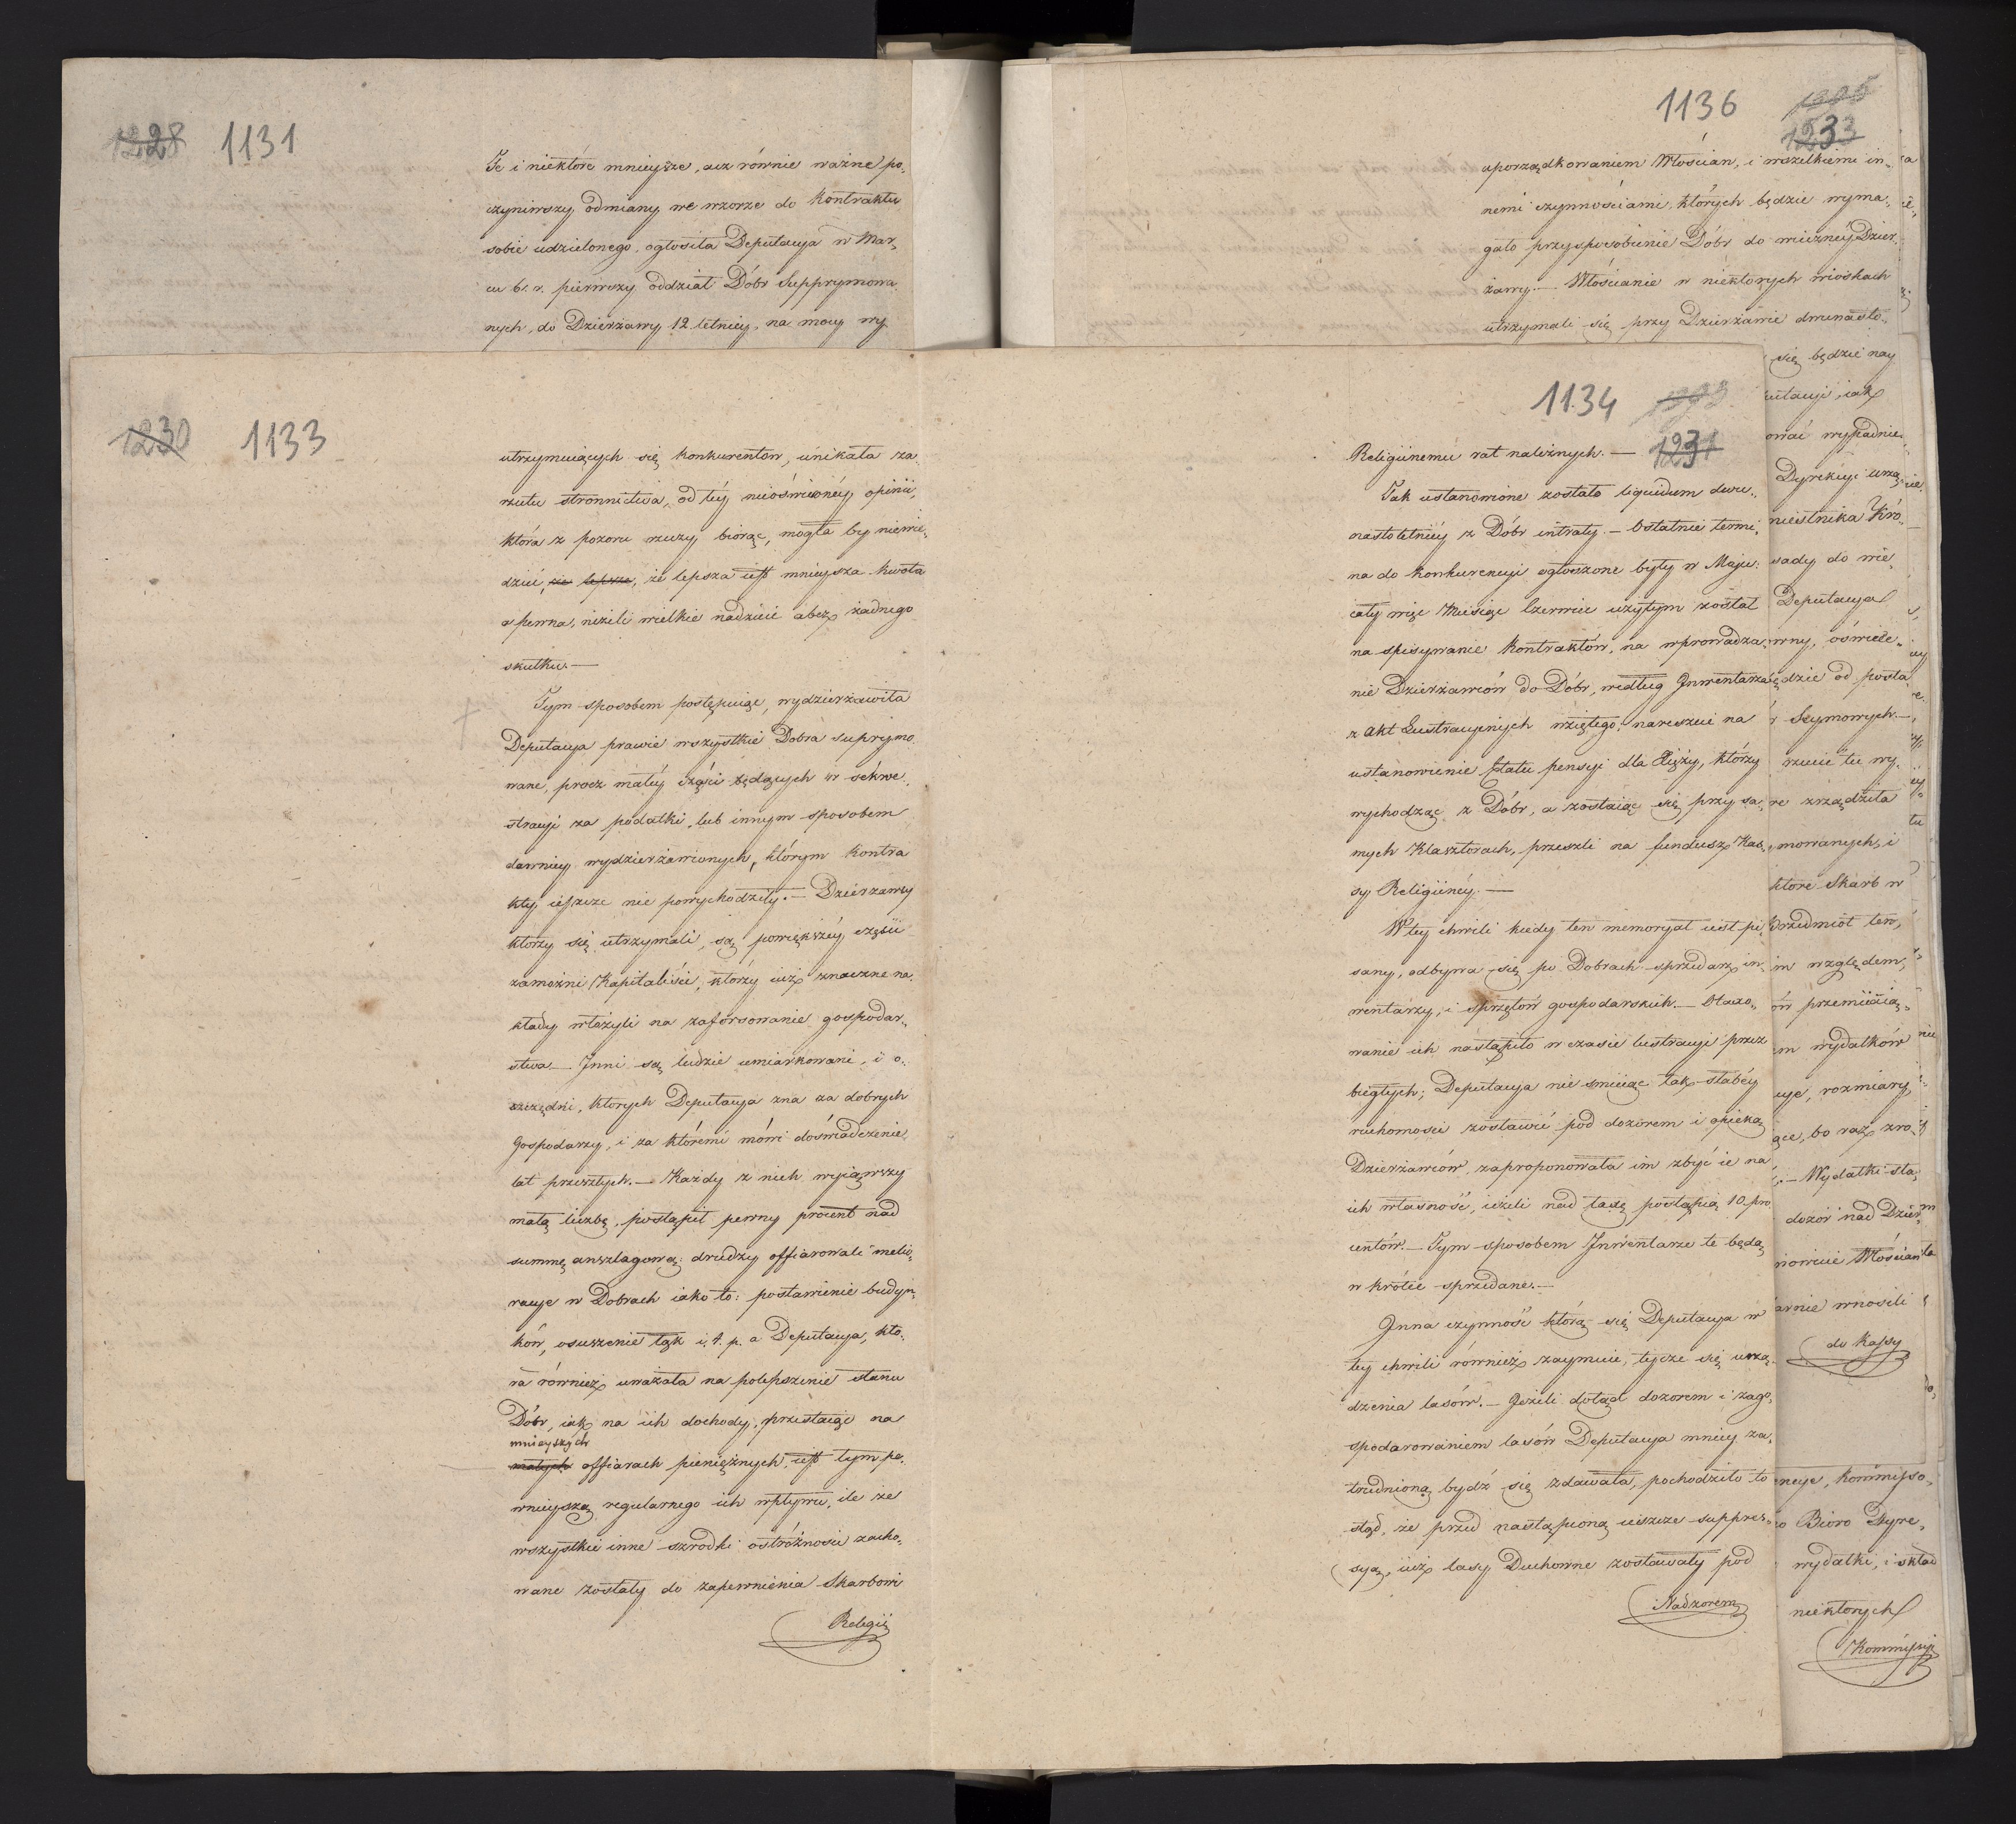 1228 1131
Te i niektóre mnieysze, acz równie ważne po„
czyniwszy odmiany we wzorze do Kontraktu
sobie udzielonego, ogłosiła Deputacya w Mar„
cu b. r. pierwszy oddział Dóbr Supprymowa
nych, do Dzierżawy 12 letniey, na mocy wy
1136
1233
uporządkowaniem Włościan, i wszelkiemi in„
nemi czynnościami, których będzie wyma„
gało przysposobienie Dóbr do wieczney Dzier„
żawy. — Włościanie w niektorych wioskach
utrzymali się przy Dzierżawie dwunasto„
1230 1133
utrzymuiących się konkurentów, unikała za„
rzutu stronnictwa, od téy nieoświeconéy opinii,
która z pozoru rzeczy biorąc, mogła by niewie„
dzieć, że lepsza, że lepsza iest mnieysza kwota
a pewna, niżeli wielkie nadzieie a bez żadnego
skutku. —
Tym sposobem postępuiąc, wydzierżawiła
Deputacya prawie wszystkie Dobra suprymo
wane, procz małéy części będących w sekwe„
stracyi za podatki, lub innym sposobem
dawniey wydzierżawionych, którym Kontra
kty ieszcze nie powychodziły. — Dzierzawcy
ktorzy się utrzymali, są powiększéy części
zamożni Kapitaliści, którzy iuż znaczne na„
kłady włożyli na zaforsowanie gospodar„
stwa — Inni są ludzie umiarkowani, i o„
szczędni, ktorych Deputacya zna za dobrych
Gospodarzy, i za któremi mówi doświadczenie
lat przeszłych. — Każdy z nich wyiąwszy
małą liczbę, postąpił pewny procent nad
summę anszlagową: drudzy offiarowali melio„
racye w Dobrach iako to: postawienie budyn„
ków, osuszenie łąk i. t. p. a Deputacya, któ„
ra również uważała na polepszenie stanu
Dóbr, iak na ich dochody, przestaiąc na
mnieyszych
małych offiarach pieniężnych, iest tym pe„
wnieyszą regularnego ich wpływu, ile że
wszystkie inne szrodki ostróżności zacho„
wane zostały do zapewnienia Skarbowi
Religii
1134
1231
Religiinemu rat należnych. —
Tak ustanowione zostało liquidum dwu„
nastoletniéy z Dóbr intraty. — Ostatnie termi„
na do konkurencyi ogłoszone były w Maju:
cały więc Miesiąc Czerwiec użytym został
na spisywanie Kontraktów, na wprowadza„
nie Dzierżawców do Dóbr, według Inwentarza
z Akt Lustracyinych wziętego: nareszcie na
ustanowienie Etatu pensyi dla Xięży, którzy
wychodząc z Dóbr, a zostaiąc się przy sa„
mych Klasztorach, przeszli na fundusz Kas„
sy Religiinéy. —
W tey chwili kiedy ten memoryał iest pi„
sany, odbywa się po Dobrach sprzedarz in„
wentarzy, i sprzętów gospodarskich. — Otaxo„
wanie ich nastąpiło w czasie lustracyi przez
biegłych; Deputacya nie śmieiąc tak słabéy
ruchomości zostawić pod dozorem i opieką
Dzierżawców, zaproponowała im zbyć ie na
ich własność, ieżeli nad taxę postąpią 10. pro
centów. — Tym sposobem Inwentarze te będą
w krótce sprzedane. —
Inna czynność którą się Deputacya w
tey chwili również zaymuie, tycze się urzą„
dzenia lasów. — Jeżeli dotąd dozorem i zago„
spodarowaniem lasów Deputacya mniey za„
trudnioną bydź się zdawała, pochodziło to
stąd, że przed nastąpioną ieszcze suppres„
syą, iuż lasy Duchowne zostawały pod
Nadzorem
się będzie nay
iak
wypadnie
Dyrekcyi urzą
sady do wie„
Deputacya
oświece„
od posta
Seymowych. —
rzucić tu wy„
zrządziła
i
które Skarb w
Przedmiot ten,
względem,
wydatków
rozmiary,
bo raz zro„
— Wydatki sta„
dozór nad Dzier
Włościan
wnosili
do Kassy
Kommisso„
Bióro Dyre„
wydatki, i skład
niektorych
Kommissyi